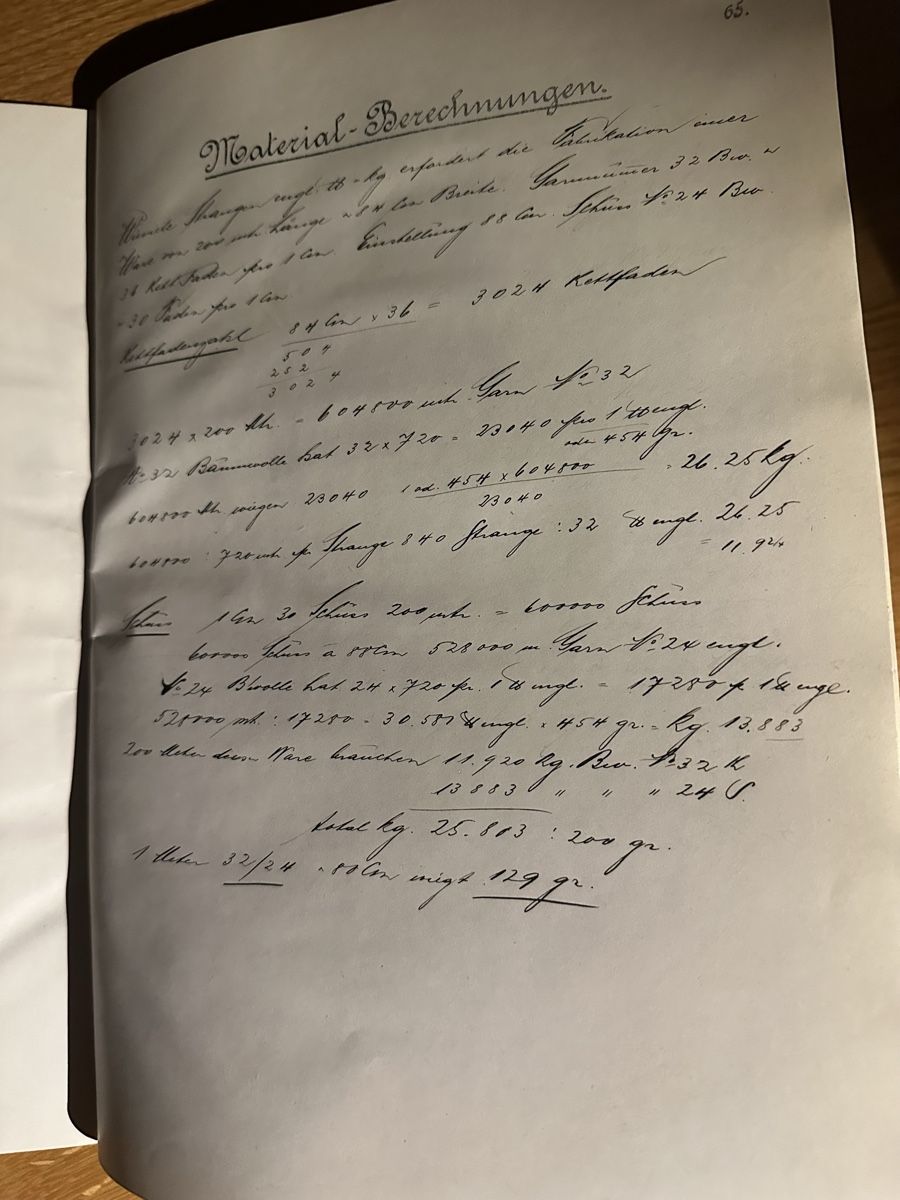 65.
Material-Berechnungen.
Wieviele Strangen engl. ℔ = kg erfordert die Fabrikation einer
Ware von 200 mtr. Länge 84 Cm Breite. Garnnummer 32 Bw.
36 Kett Faden pro 1 Cm. Einstellung 88 Cm. Schuss No 24 Bw.
30 Faden pro 1 Cm.
Kettfadenzahl 84 Cm x 36 = 3024 Kettfaden
504
252
3024
3024 x 200 Mtr. = 604800 mtr. Garn No 32
No 32 Baumwolle hat 32 x 720 = 23040 pro 1 ℔ engl.
oder 454 gr.
604800 Mtr. wiegen 23040 1 od. 454 x 604800 = 26.25 kg.
23040
604800 : 720 mtr. pr Strange 840 Stränge : 32 ℔ engl. 26.25
= 11.92
Schuss 1 Cm 30 Schüss 200 mtr. = 600000 Schüss
600000 Schuss à 88 Cm 528000 m. Garn No 24 engl.
No 24 B'wolle hat 24 x 720 pr. 1 ℔ engl. = 17280 p 1 ℔ engl.
528000 mt. : 17280 = 30.581 ℔ engl. x 454 gr. = kg. 13.883
200 Meter dieser Ware brauchen 11.920 Kg. Bw. No 32 K
13883 " " " 24 S.
total kg. 25.803 : 200 gr.
1 Meter 32/24 80 Cm wiegt 129 gr.